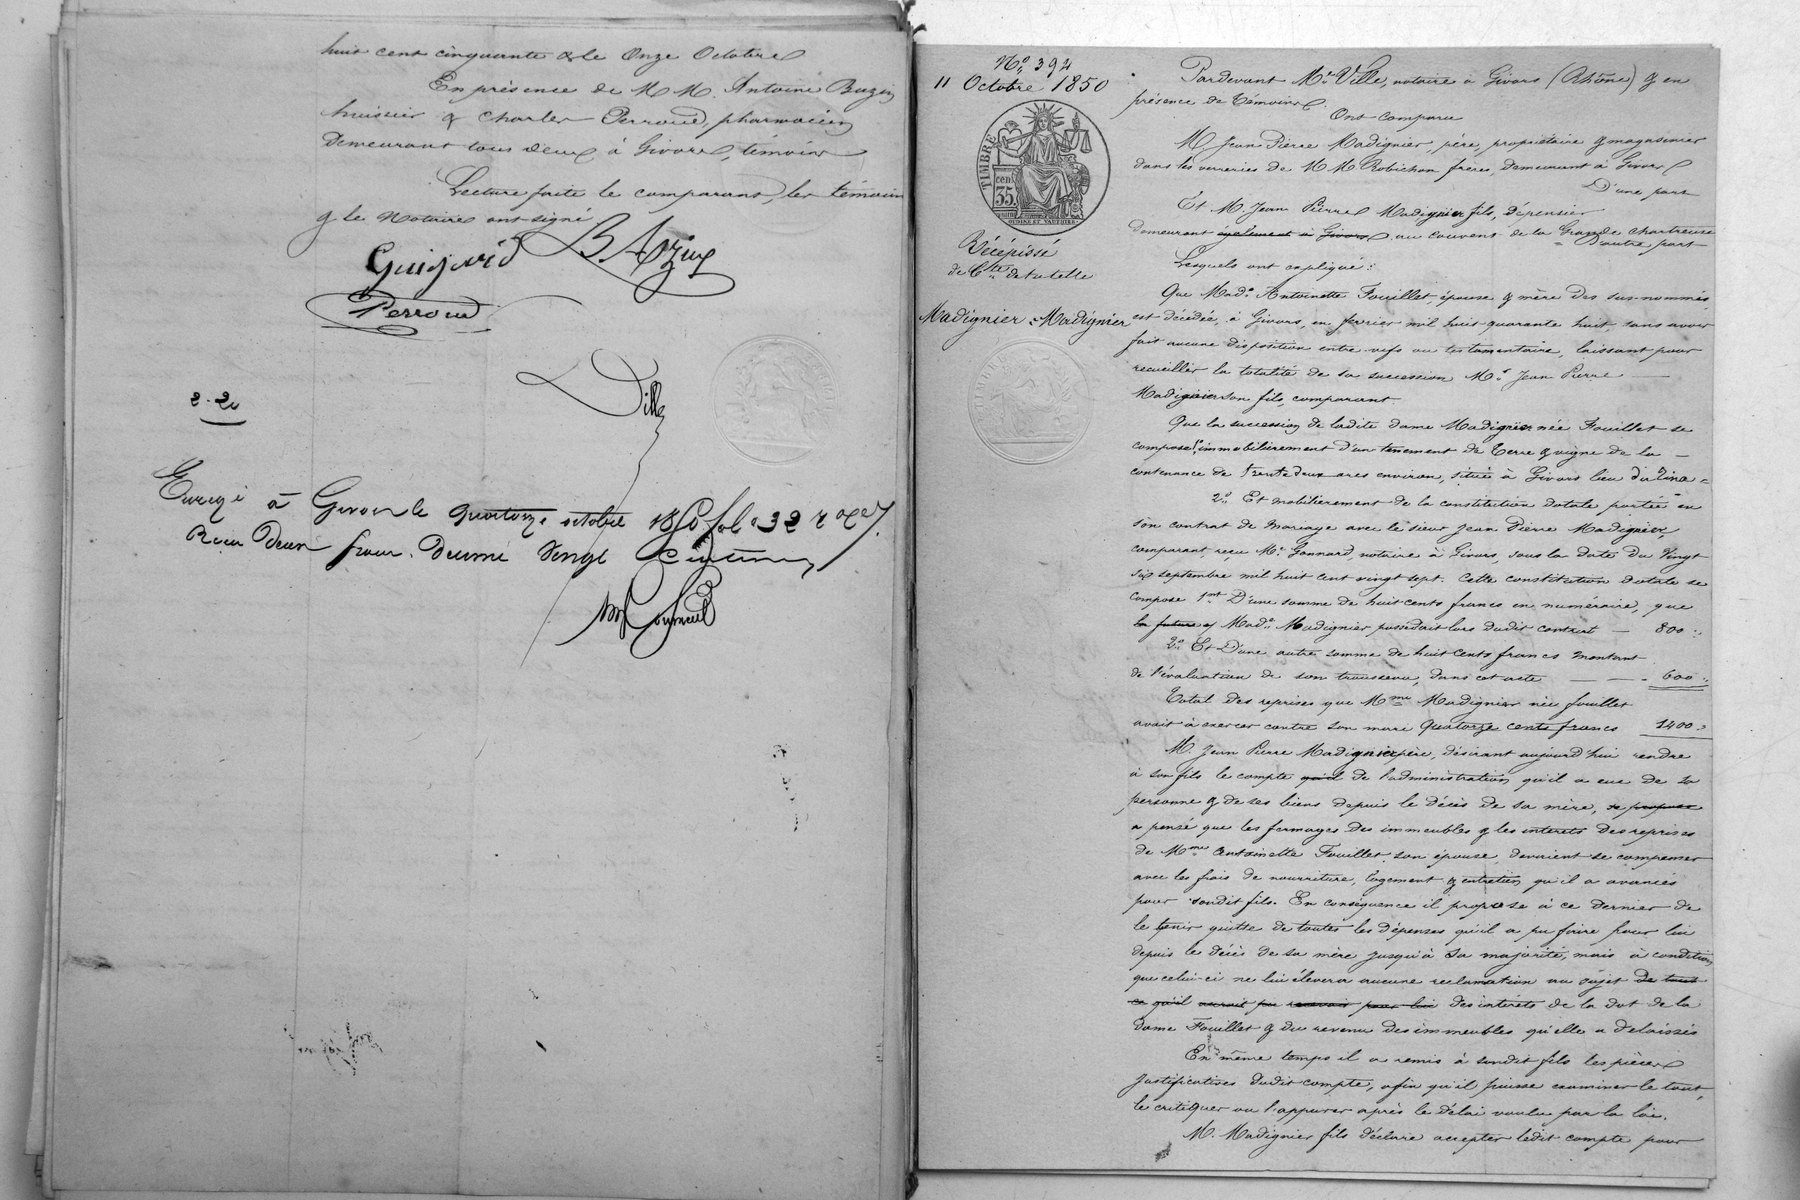 huit cent cinquante & le Onze Octobre
En présence de M M. Antoine Bazin
huissier & Charles Perroud, pharmacien
demeurant tous deux à Givors, témoins
Lecture faite le comparant, les témoins
& le Notaire ont signé
Guijard BAzin
Perroud
Ville
2.20
Enregé à Givors le quatorze octobre 1850 fol. 32
Reçu Deux francs. Decime Vingt Centimes
No. 394
11 Octobre 1850
TIMBRE
cen.
35.
OUDINÉ ET VAUTHIER
Récépissé
de Cte de tutelle
Madignier = Madignier
Pardevant Me Ville, notaire à Givors (Rhône) & en
présence de témoins.
Ont comparu
M. Jean Pierre Madignier, père, propriétaire & magasinier
dans les verreries de M. M. Robichon frères, demeurant à Givors
D'une part
Et M. Jean Pierre Madignier fils, dépensier
demeurant également à Givors, au couvent de la Grande chartreuse
d'autre part
Lesquels ont expliqué:
Que Made Antoinette Fouillet, épouse & mère des sus-nommés,
est décédée, à Givors, en février mil huit quarante huit, sans avoir
fait aucune disposition entre vifs ou testamentaire, laissant pour
recueillir la totalité de sa succession Mr Jean Pierre
Madignier son fils, comparant
Que la succession de ladite dame Madignier née Fouillet se
compose 1° immobilièrement d'un tènement de terre & vigne de la
contenance de trente deux ares environ, situé à Givors lieu
2° Et mobilièrement de la constitution dotale portée en
son contrat de mariage avec le sieur Jean Pierre Madignier,
comparant, reçu Me Gonnard, notaire à Givors, sous la date du vingt
six septembre mil huit cent vingt sept. Cette constitution dotale se
compose 1nt D'une somme de huit cents francs en numéraire, que
la future & Made Madignier possédait lors dudit contrat — 800
2° Et D'une autre somme de huit cents francs montant
de l'évaluation de son trousseau, dans cet acte — — — 600
Total des reprises que Mme Madignier née fouillet
avait à exercer contre son mari quatorze cents francs 1400
M. Jean Pierre Madignier père, désirant aujourd'hui rendre
à son fils le compte qu'il de l'administration qu'il a eue de sa
personne & de ses biens depuis le décès de sa mère, se propose
a pensé que les fermages des immeubles & les intérets des reprises
de Mme Antoinette Fouillet, son épouse, devaient se compenser
avec les frais de nourriture, logement & entretien qu'il a avancés
pour sondit fils. En conséquence il propose à ce dernier de
le tenir quitte de toutes les dépenses qu'il a pu faire pour lui
depuis le décès de sa mère jusqu'à sa majorité, mais à condition
que celui-ci ne lui élevera aucune reclamation au sujet de tout
ce qu'il aurait pu recevoir pour lui des intérets de la dot de la
dame Fouillet & du revenu des immeubles qu'elle a delaissés
En même temps il a remis à sondit fils les pièces
justificatives dudit compte, afin qu'il puisse examiner le tout,
le critiquer ou l'appurer après le délai voulu par la loi.
M. Madignier fils déclare accepter ledit compte pour